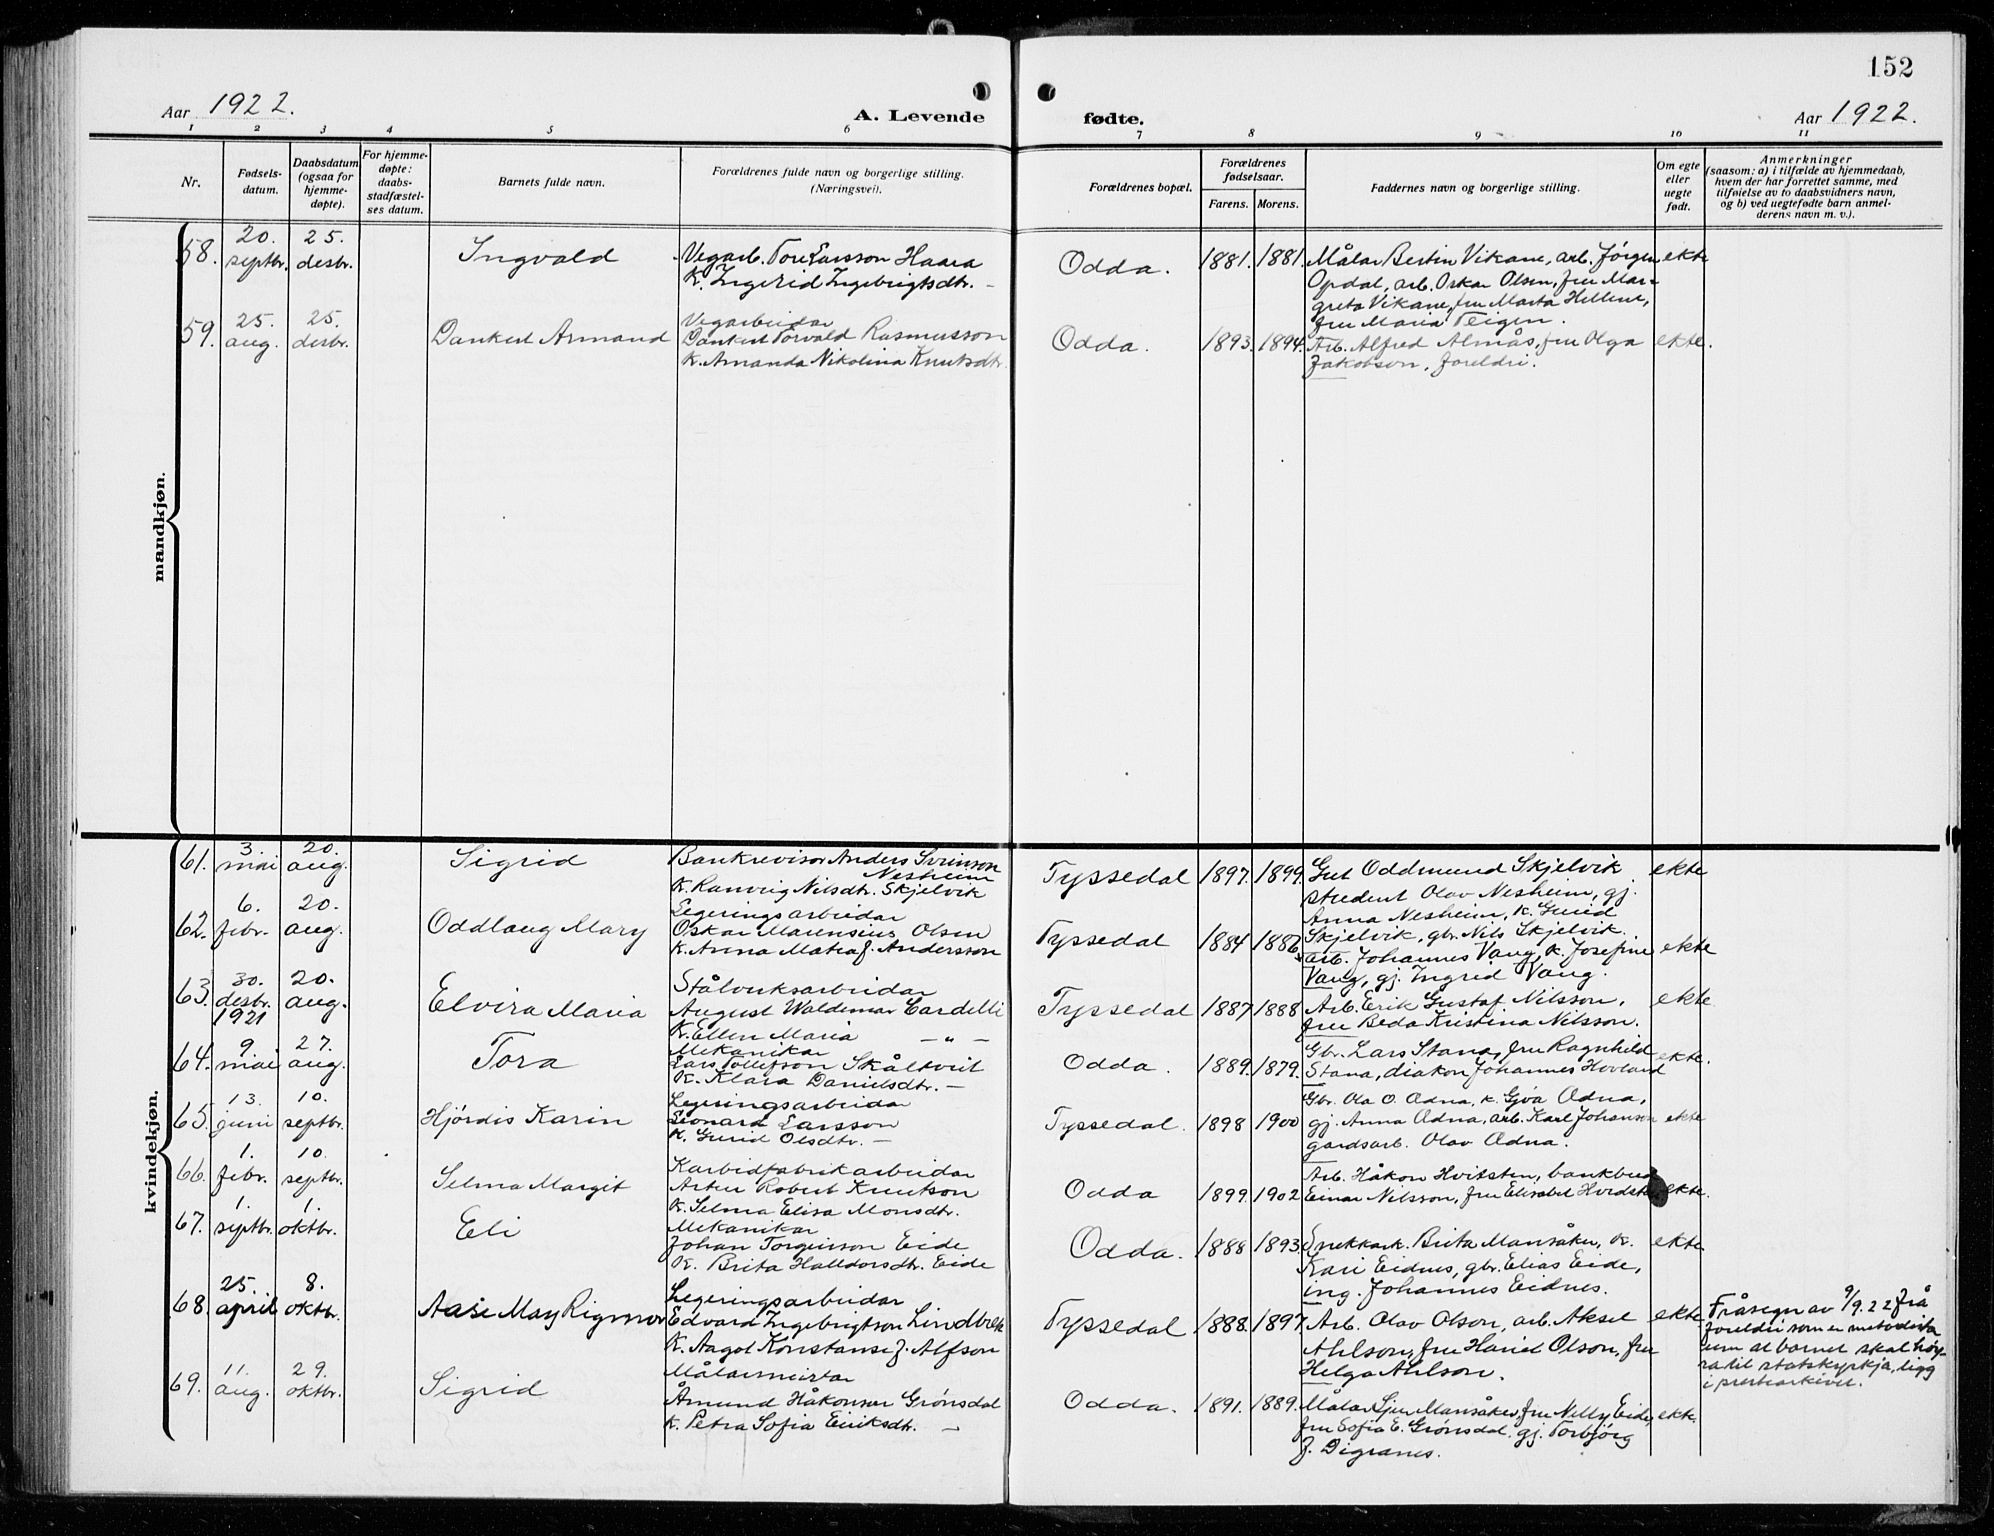 152
Aar 1922.
A. Levende fødte.
Aar 1922.
1 2 3 4 5 6 7 8 9 10 11
Nr.
Fødsels-
datum.
Daabsdatum
(ogsaa for
hjemme-
døpte).
For hjemme-
døpte:
daabs-
stadfæstel-
ses datum.
Barnets fulde navn.
Forældrenes fulde navn og borgerlige stilling.
(Næringsvei).
Forældrenes bopæl.
Forældrenes
fødselsaar.
Farens. Morens.
Faddernes navn og borgerlige stilling.
Om egte
eller
uegte
født.
Anmerkninger
(saasom: a) i tilfælde av hjemmedaab,
hvem der har forrettet samme, med
tilføielse av to daabsvidners navn,
og b) ved uegtefødte barn anmel-
derens navn m. v.).
mandkjøn.
58.
20.
septbr.
25.
desbr.
Ingvald
Vegarb. Tore Larsson Haara
K. Ingerid Ingebrigtsdtr. –
Odda.
1881. 1881.
Målar Bertin Vikane, arb. Jørgen
Opdal, arb. Oskar Olsen, fru Mar-
greta Vikane, fru Marta
fru Maria Teigen.
ekte
59.
25.
aug.
25.
desbr.
Dankert Armand
Vegarbeidar
Dankert Torvald Rasmusson
K. Amanda Nikolina Knutsdtr.
Odda.
1893. 1894.
Arb. Alfred Almås, fru Olga
Jakobson, foreldri.
ekte.
kvindekjøn.
61.
3.
mai
20.
aug.
Sigrid
Bankrevisor Anders Sveinson
Nesheim
K. Ranveig Nilsdtr. Skjelvik
Tyssedal
1897. 1899.
Gut Oddmund Skjelvik
student Olav Nesheim, gj.
Anna Nesheim, k. Gurid
Skjelvik, gbr. Nils Skjelvik.
ekte
62.
6.
febr.
20.
aug.
Oddlaug Mary
Legeringsarbeidar
Oskar Marensius Olsen
K. Anna Matea J. Andersson
Tyssedal
1884 1886
Arb. Johannes Vang, k. Josefine
Vang, gj. Ingrid Vang.
ekte
63.
30.
desbr.
1921
20.
aug.
Elvira Maria
Stålverksarbeidar
August Waldemar Cardelli
K. Ellen Maria – " –
Tyssedal
1887 1888
Arb. Erik Gustaf Nilsson,
fru Beda Kristina Nilsson.
ekte
64.
9.
mai
27.
aug.
Tora
Mekanikar
Lars Tollefson Skåltveit
K. Klara Danielsdtr. –
Odda.
1889. 1879.
Gbr. Lars Stana, fru Ragnhild
Stana, diakon Johannes Hovland
ekte.
65.
13.
juni
10.
septbr.
Hjördis Karin
Legeringsarbeidar
Leonard Larsson
K. Gurid Olsdtr. –
Tyssedal.
1898 1900
Gbr. Ola O. Ædna, k. Gjøa Ædna,
gj. Anna Ædna, arb. Karl Johanson
gardsarb. Olav Ædna.
ekte
66.
1.
febr.
10.
septbr.
Selma Margit
Karbidfabrikarbeidar
Artur Robert Knutson
K. Selma Elisa Monsdtr.
Odda
1899. 1902
Arb. Håkon Hvitsten, bankbud
Einar Nilsson, fru Elisabet
ekte.
67.
1.
septbr.
1.
oktbr.
Eli
Mekanikar
Johan Torgeirson Eide
K. Brita Halldorsdtr. Eide
Odda.
1888 1893.
Snekkark. Brita Mansåker, k.
Kari Eidnes, gbr. Elias Eide,
ing. Johannes Eidnes.
ekte
68.
25.
april
8.
oktbr.
Aase May Rigmor
Legeringsarbeidar
Edvard Ingebrigtson Lindbæk
K. Aagot Konstanse J. Alfson
Tyssedal
1888. 1897
Arb. Olav Olson, arb. Aksel
Ahlson, fru Olson, fru
Helga Ahlson.
ekte
Fråsegn av 9/9.22 frå
foreldri som er metodistar
um at barnet skal høy-
ra til statskyrkja, ligg
i prestearkivet.
69.
11.
aug.
29.
oktbr.
Sigrid
Målarmeistar
Åmund Håkonson Grønsdal
K. Petra Sofia Eiriksdtr. –
Odda.
1891. 1889.
Målar Sjur Mansåker, fru Nelly Eide,
fru Sofia E. Grønsdal, gj. Torbjørg
J. Digranes.
ekte.